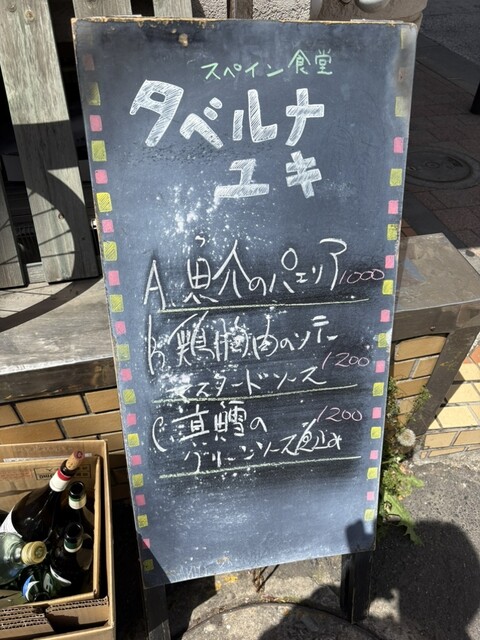 スペイン食堂
タベルナ
ユキ
A. 魚介のパエリア 1000
B. 鶏胸肉のソテー
マスタードソース 1200
C. 真鱈の 1200
グリーンソース煮込み